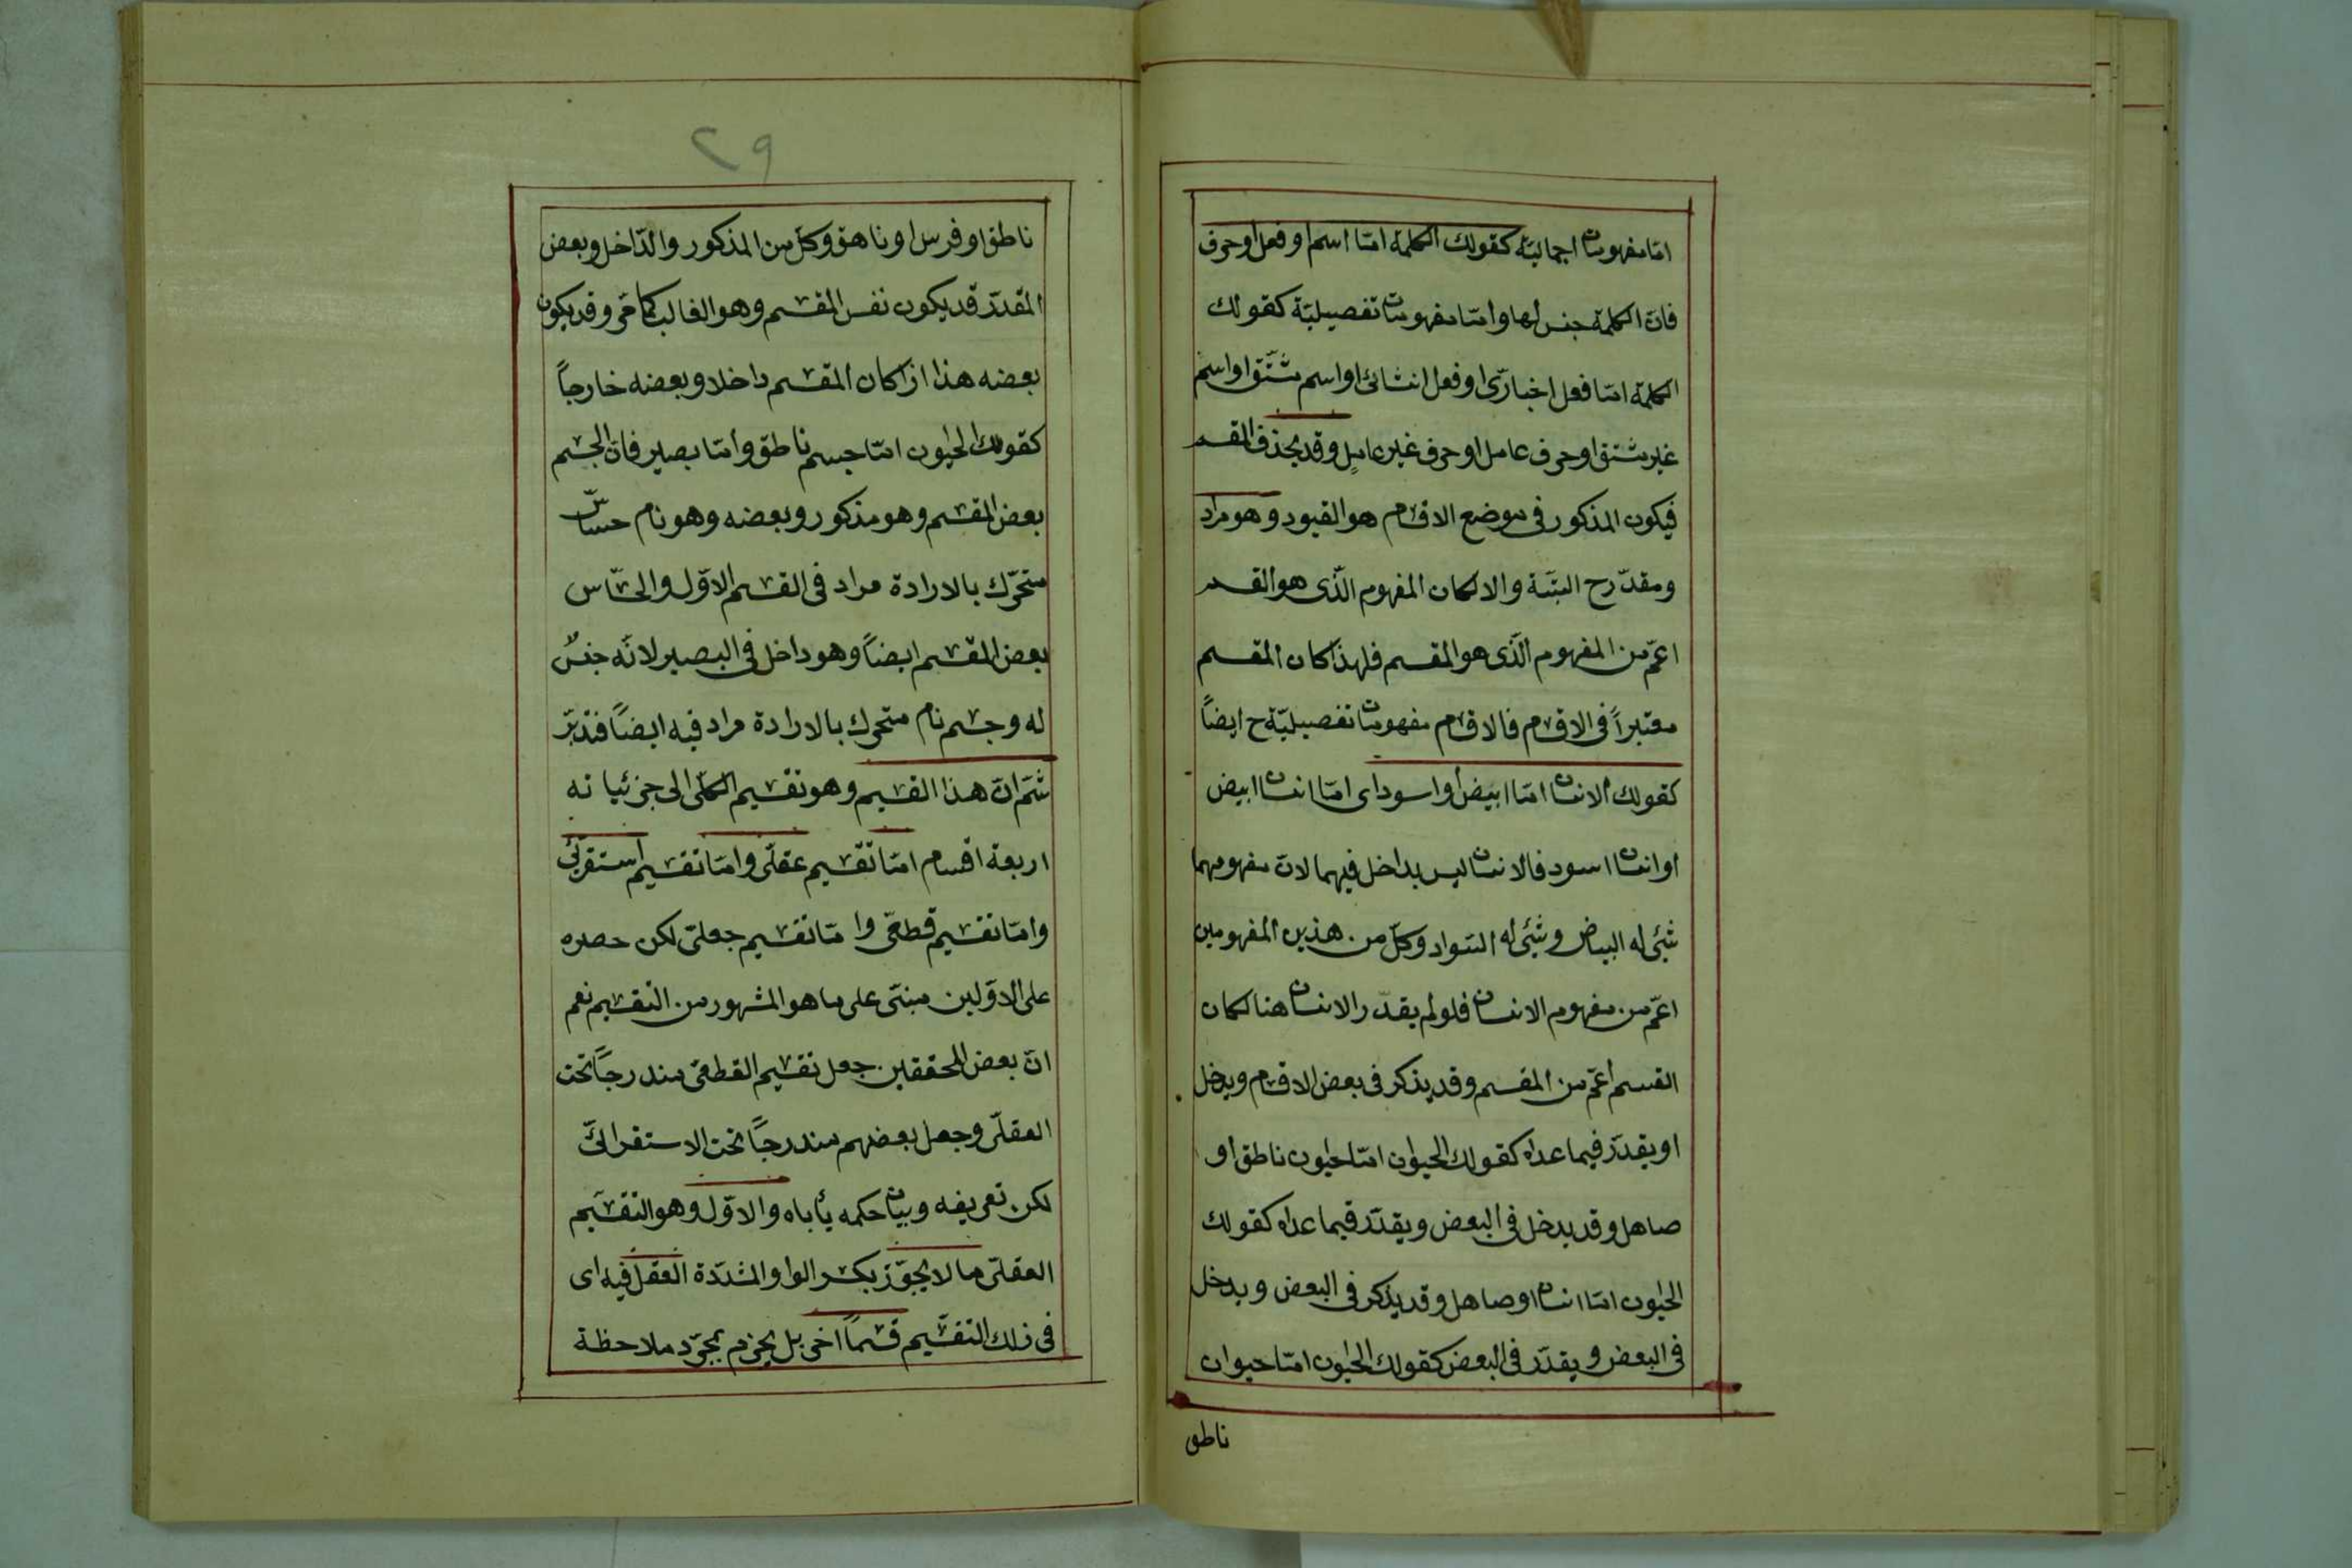 امّا مفهومات اجماليّة كقولك الكلمة امّا اسم او فعل او حرف
فانّ الكلمة جنس لها وامّا مفهومات تفصيليّة كقولك
الكلمة امّا فعل اخبارىّ او فعل انشائى او اسم مشتّق او اسم
غير مشتق او حرف عامل او حرف غير عامل وقد يحذف المقسم
فيكون المذكور فى موضع الاقسام هو القيود وهو مراد
ومقدّر ح البتّة والا لكان المفهوم الّذى هو القسم
اعمّ من المفهوم الّذى هو المقسم فلهذا كان المقسم
معتبراً فى الاقسام فالاقسام مفهومات تفصيليّة ح ايضاً
كقولك الانسان امّا ابيض او اسود اى امّا انسان ابيض
او انسان اسود فالانسان ليس بداخل فيهما لانّ مفهومهما
شئ له البياض وشئ له السّواد وكلّ من هذين المفهومين
اعمّ من مفهوم الانسان فلو لم يقدّر الانسان هنا لكان
القسم اعمّ من المقسم وقد يذكر فى بعض الاقسام ويدخل
او يقدّر فيما عداه كقولك الحيوان امّا حيوان ناطق او
صاهل وقد يدخل فى البعض ويقدّر فيما عداه كقولك
الحيوان امّا انسان او صاهل وقد يذكر فى البعض ويدخل
فى البعض ويقدّر فى البعض كقولك الحيوان امّا حيوان
ناطق
٢٩
ناطق او فرس او ناهق وكلّ من المذكور والدّاخل وبعض
المقدّر قد يكون نفس المقسم وهو الغالب كما مرّ وقد يكون
بعضه هذا اذا كان المقسم داخلا وبعضه خارجاً
كقولك الحيوان امّا جسم ناطق وامّا بصير فانّ الجسم
بعض المقسم وهو مذكور وبعضه وهو نام حسّاس
متحرّك بالارادة مراد فى القسم الاوّل والحسّاس
بعض المقسم ايضاً وهو داخل فى البصير لانّه جنسٌ
له وجسم نام متحرك بالارادة مراد فيه ايضاً فتدبّر
ثمّ انّ هذا التقسيم وهو تقسيم الكلّى الى جزئياته
اربعة اقسام امّا تقسيم عقلّى وامّا تقسيم استقرائى
وامّا تقسيم قطعّى وامّا تقسيم جعلىّ لكن حصره
على الاوّلين مبنىّ على ما هو المشهور من التقسيم نعم
انّ بعض المحققين جعل تقسيم القطعى مندرجاً تحت
العقلّى وجعل بعضهم مندرجاً تحت الاستقرائىّ
لكن تعريفه وبيان حكمه يأباه والاوّل وهو التقسيم
العقلّى ما لا يجوّز بكسر الواو المشدّدة العقل فيه اى
فى ذلك التقسيم قسماً اخر بل يجزم بمجرّد ملاحظة